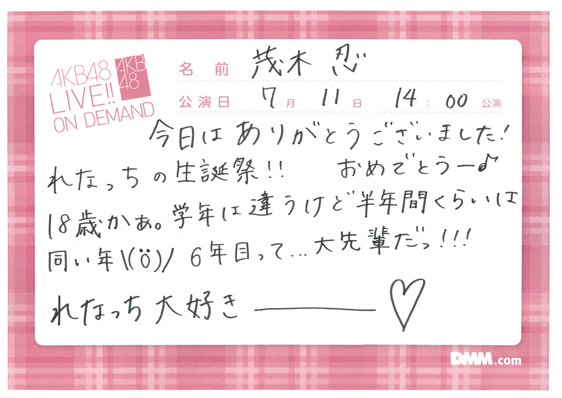 AKB48
LIVE!!
ON DEMAND
AKB
48
名前 茂木忍
公演日 7月 11日 14:00公演
今日はありがとうございました!
れなっちの生誕祭!! おめでとうー♪
18歳かぁ。学年は違うけど半年間くらいは
同い年\(ö)/ 6年目って...大先輩だっ!!!
れなっち大好き———♡
DMM.com